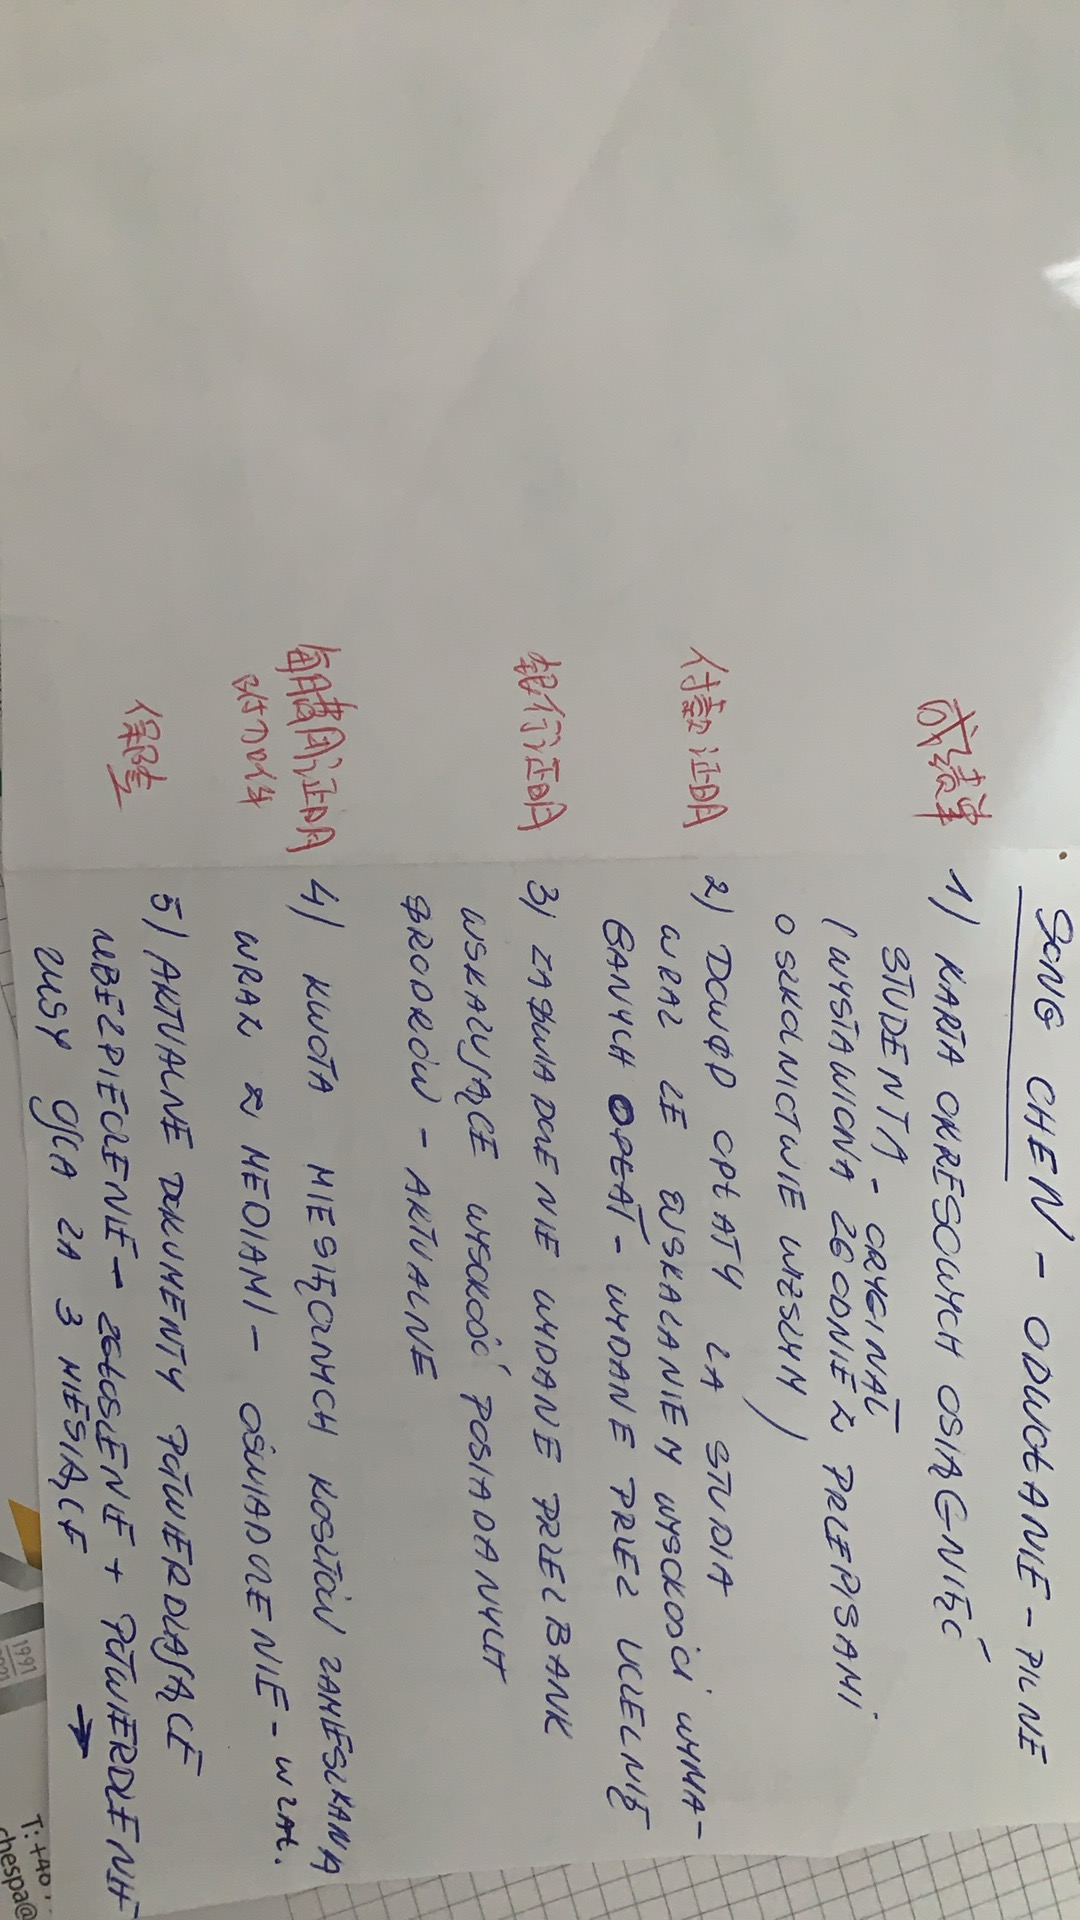 SONG CHEN - ODWOŁANIE - PILNE
成绩单
1) KARTA OKRESOWYCH OSIĄGNIĘĆ
STUDENTA - ORYGINAŁ
(WYSTAWIONA ZGODNIE Z PRZEPISAMI
O SZKOLNICTWIE WYŻSZYM)
付款证明
2) DOWÓD OPŁATY ZA STUDIA
WRAZ ZE WSKAZANIEM WYSOKOŚCI WYMA-
GANYCH OPŁAT - WYDANE PRZEZ UCZELNIĘ
银行证明
3) ZAŚWIADCZENIE WYDANE PRZEZ BANK
WSKAZUJĄCE WYSOKOŚĆ POSIADANYCH
ŚRODKÓW - AKTUALNE
每月费用证明
4) KWOTA MIESIĘCZNYCH KOSZTÓW ZAMIESZKANIA
WRAZ Z MEDIAMI - OŚWIADCZENIE - W ZAŁ.
保险
5) AKTUALNE DOKUMENTY POTWIERDZAJĄCE
UBEZPIECZENIE - ZGŁOSZENIE + POTWIERDZENIE
ZUSY OJCA ZA 3 MIESIĄCE →
1991
T: +40
chespa@